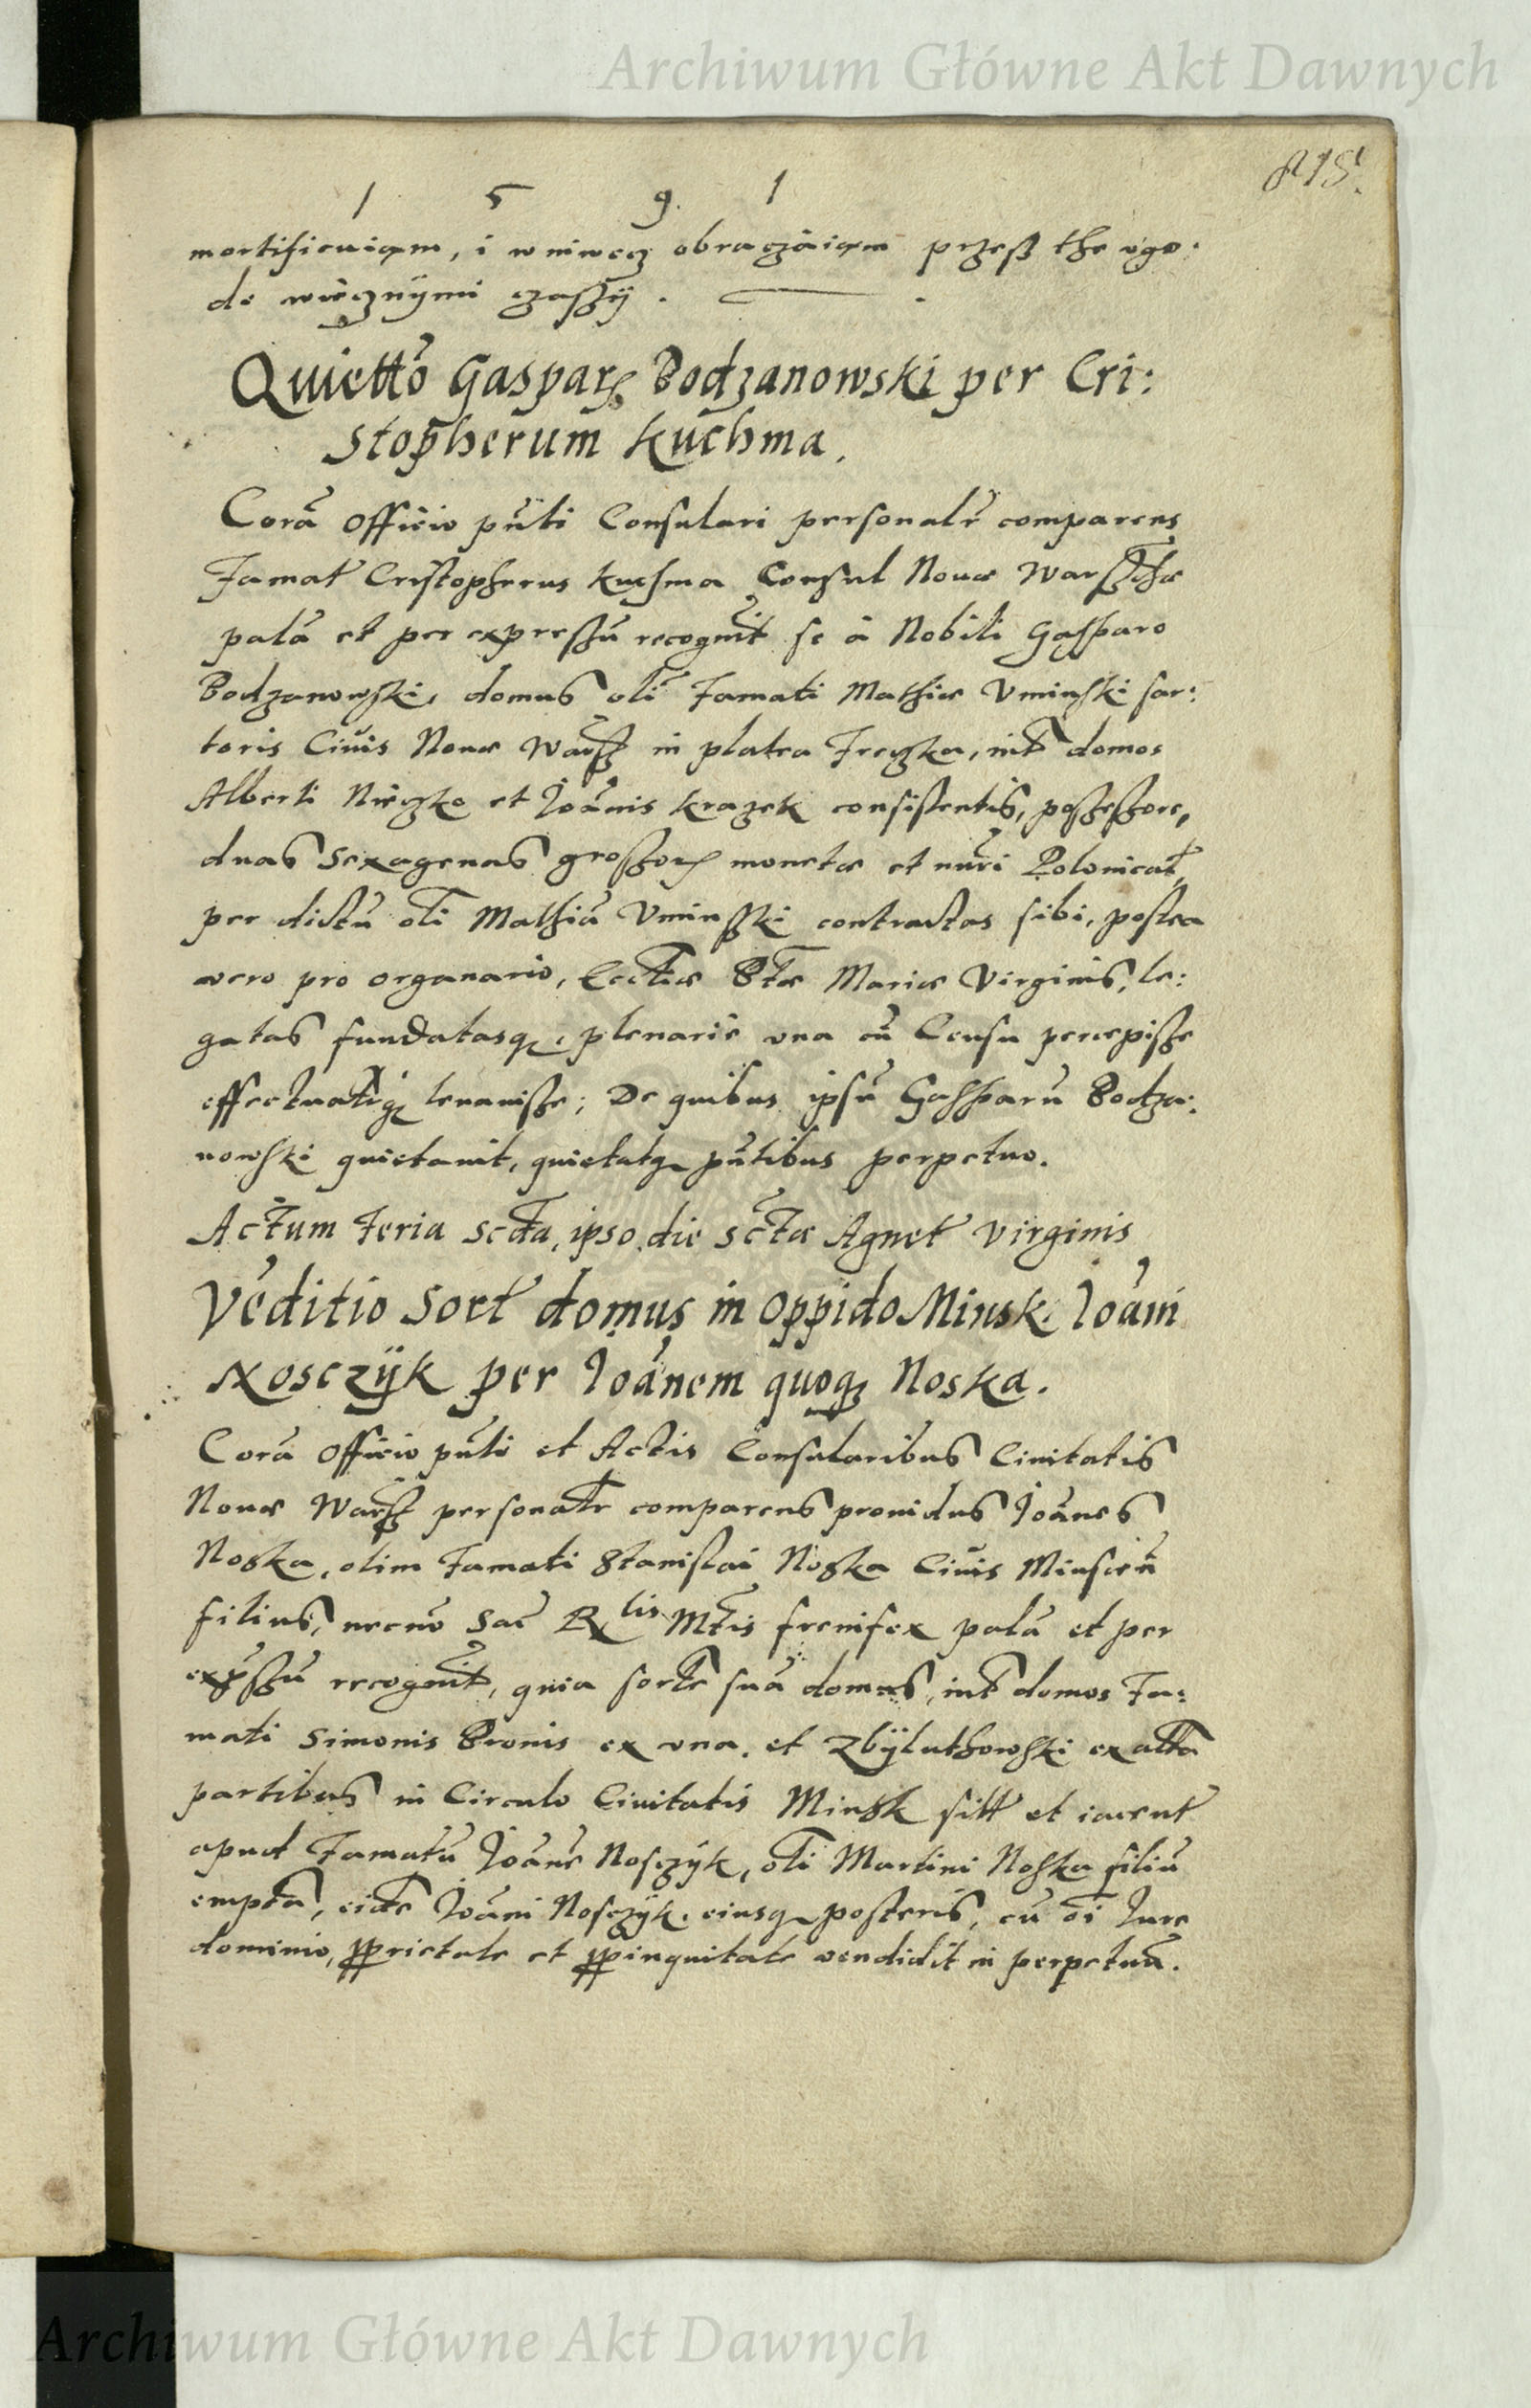 Archiwum Główne Akt Dawnych
815.
1 5 9. 1
mortifikuiąm, i wniwecz obraczáiąm przeß the vgo:
de wiecznÿmi czaszÿ.
Quiettõ Gaspar. Bodzanowski per Cri:
stopherum Kuchma.
Corã Officio pñti Consulari personalr̃ comparens
Famat̃ Cristopherus Kuchma Consul Nouæ Warsz̃
palã et per expressũ recognit̃ se à Nobili Gasparo
Bodzanowski, domus oli Famati Mathiæ Vminski sar:
toris Ciuis Nouæ Warsz̃ in platea Freczka, int̃ domos
Alberti Nieczko et Joãnis Krazek consistentis, possessore,
duas Sexagenas grossor. monetæ et nũri Polonical̃,
per dictũ oli Mathiã Vminski contractas sibi, postea
vero pro organario, Ecctiæ Btæ Mariæ Virginis, le:
gatas fundatasq, plenariè vna cũ Censu percepisse
effectuatieq leuauisse; De quibus ipsũ Gasparũ Bodza:
nowski quietauit, quietatq pñtibus perpetuo.
Actum Feria scda, ipso die sctæ Agnet̃ Virginis
Vẽditio Sort̃ domus in Oppido Minsk. Joãni
Nosczÿk per Joãnem quoq Noska.
Corã Officio pñti et Actis Consularibus Ciuitatis
Nouæ Warsz̃ personalr̃ comparens prouidus Joãnes
Noska, olim Famati Stanislai Noska Ciuis Minscen̄
filius, necnõ Sac̃ Rlis Mtis frenifex palã et per
exp̃ssũ recognit̃, quia sortẽ suã domus, int̃ domos Fa:
mati Simonis Bronis ex vna, et Zbÿluthowski ex alta
partibus in Circulo Ciuitatis Minsk sitt̃ et iacent̃
apud Famatũ Joãnẽ Nosczÿk, oli Martini Noska filiũ
empta, eidẽ Joãni Nosczÿk, eiusq posteris, cũ oi Iure
dominio, pprietate et ppinquitate vendidit in perpetuũ.
Archiwum Główne Akt Dawnych